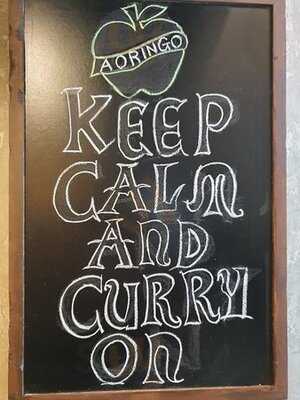 AORINGO
KEEP
CALM
AND
CURRY
ON